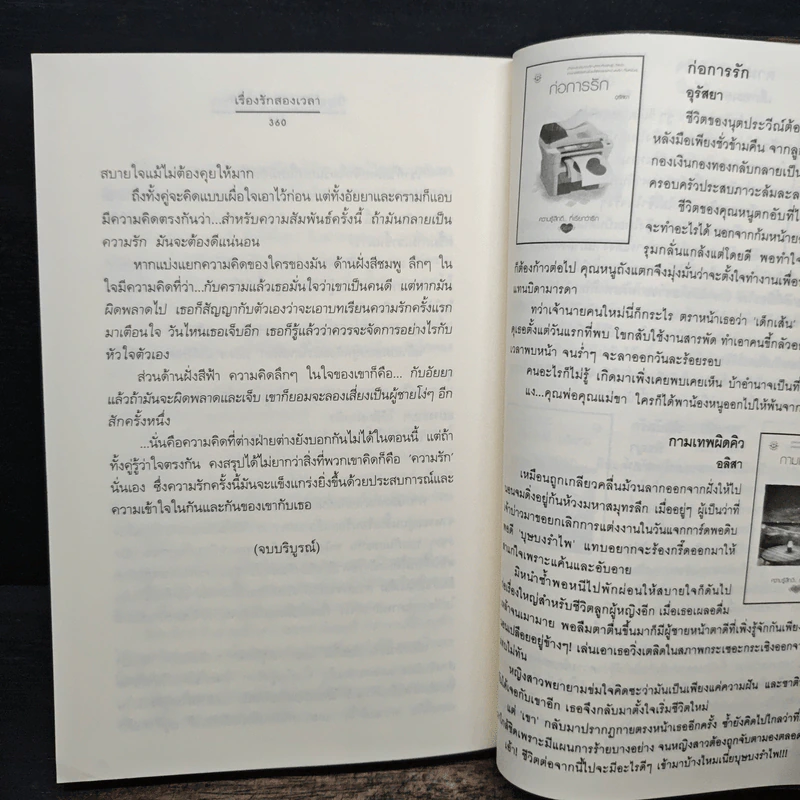 เรื่องรักสองเวลา
360
สบายใจแม้ไม่ต้องคุยให้มาก
ถึงทั้งคู่จะคิดแบบเผื่อใจเอาไว้ก่อน แต่ทั้งอัยยาและครามก็แอบ
มีความคิดตรงกันว่า...สำหรับความสัมพันธ์ครั้งนี้ ถ้ามันกลายเป็น
ความรัก มันจะต้องดีแน่นอน
หากแบ่งแยกความคิดของใครของมัน ด้านฝั่งสีชมพู ลึกๆ ใน
ใจมีความคิดที่ว่า...กับครามแล้วเธอมั่นใจว่าเขาเป็นคนดี แต่หากมัน
ผิดพลาดไป เธอก็สัญญากับตัวเองว่าจะเอาบทเรียนความรักครั้งแรก
มาเตือนใจ วันไหนเธอเจ็บอีก เธอก็รู้แล้วว่าควรจะจัดการอย่างไรกับ
หัวใจตัวเอง
ส่วนด้านฝั่งสีฟ้า ความคิดลึกๆ ในใจของเขาก็คือ... กับอัยยา
แล้วถ้ามันจะผิดพลาดและเจ็บ เขาก็ยอมจะลองเสี่ยงเป็นผู้ชายโง่ๆ อีก
สักครั้งหนึ่ง
...นั่นคือความคิดที่ต่างฝ่ายต่างยังบอกกันไม่ได้ในตอนนี้ แต่ถ้า
ทั้งคู่รู้ว่าใจตรงกัน คงสรุปได้ไม่ยากว่าสิ่งที่พวกเขาคิดก็คือ 'ความรัก'
นั่นเอง ซึ่งความรักครั้งนี้มันจะแข็งแกร่งยิ่งขึ้นด้วยประสบการณ์และ
ความเข้าใจในกันและกันของเขากับเธอ
(จบบริบูรณ์)
ก่อการรัก
อุรัสยา
ก่อการรัก
ชีวิตของนุดประวีณ์ต้อ
หลังมือเพียงชั่วข้ามคืน จากลู
กองเงินกองทองกลับกลายเป็น
ครอบครัวประสบภาวะล้มละล
ชีวิตของคุณหนูตกอับที่ไ
จะทำอะไรได้ นอกจากก้มหน้าย
รุมกลั่นแกล้งแต่โดยดี พอทำใจ
ก็ต้องก้าวต่อไป คุณหนูถังแตกจึงมุ่งมั่นว่าจะตั้งใจทำงานเพื่อ
แทนบิดามารดา
ทว่าเจ้านายคนใหม่นี่ก็กระไร ตราหน้าเธอว่า 'เด็กเส้น'
ดุเธอตั้งแต่วันแรกที่พบ โขกสับใช้งานสารพัด ทำเอาคนขี้กลัวอ
เวลาพบหน้า จนร่ำๆ จะลาออกวันละร้อยรอบ
คนอะไรก็ไม่รู้ เกิดมาเพิ่งเคยพบเคยเห็น บ้าอำนาจเป็นที่
แง...คุณพ่อคุณแม่ขา ใครก็ได้พาน้องหนูออกไปให้พ้นจาก
กามเทพผิดคิว
อลิสา
เหมือนถูกเกลียวคลื่นม้วนลากออกจากฝั่งให้ไป
จมดิ่งอยู่กันห้วงมหาสมุทรลึก เมื่ออยู่ๆ ผู้เป็นว่าที่
เจ้าบ่าวมาขอยกเลิกการแต่งงานในวันแจกการ์ดพอดิบ
พอดี 'บุษบงรำไพ' แทบอยากจะร้องกรี๊ดออกมาให้
เพราะแค้นและอับอาย
มิหนำซ้ำพอหนีไปพักผ่อนให้สบายใจก็ดันไป
เรื่องใหญ่สำหรับชีวิตลูกผู้หญิงอีก เมื่อเธอเผลอดื่ม
จนเมามาย พอลืมตาตื่นขึ้นมาก็มีผู้ชายหน้าตาดีที่เพิ่งรู้จักกันเพียง
เปลือยอยู่ข้างๆ! เล่นเอาเธอวิ่งเตลิดในสภาพกระเซอะกระเซิงออกจา
ไม่ทัน
หญิงสาวพยายามข่มใจคิดซะว่ามันเป็นเพียงแค่ความฝัน และชาติ
เจอกับเขาอีก เธอจึงกลับมาตั้งใจเริ่มชีวิตใหม่
แต่ 'เขา' กลับมาปรากฏกายตรงหน้าเธออีกครั้ง ซ้ำยังคิดไปไกลว่าที่
เพราะมีแผนการร้ายบางอย่าง จนหญิงสาวต้องถูกจับตามองตลอด
เอ้า! ชีวิตต่อจากนี้ไปจะมีอะไรดีๆ เข้ามาบ้างไหมเนี่ยบุษบงรำไพ!!!